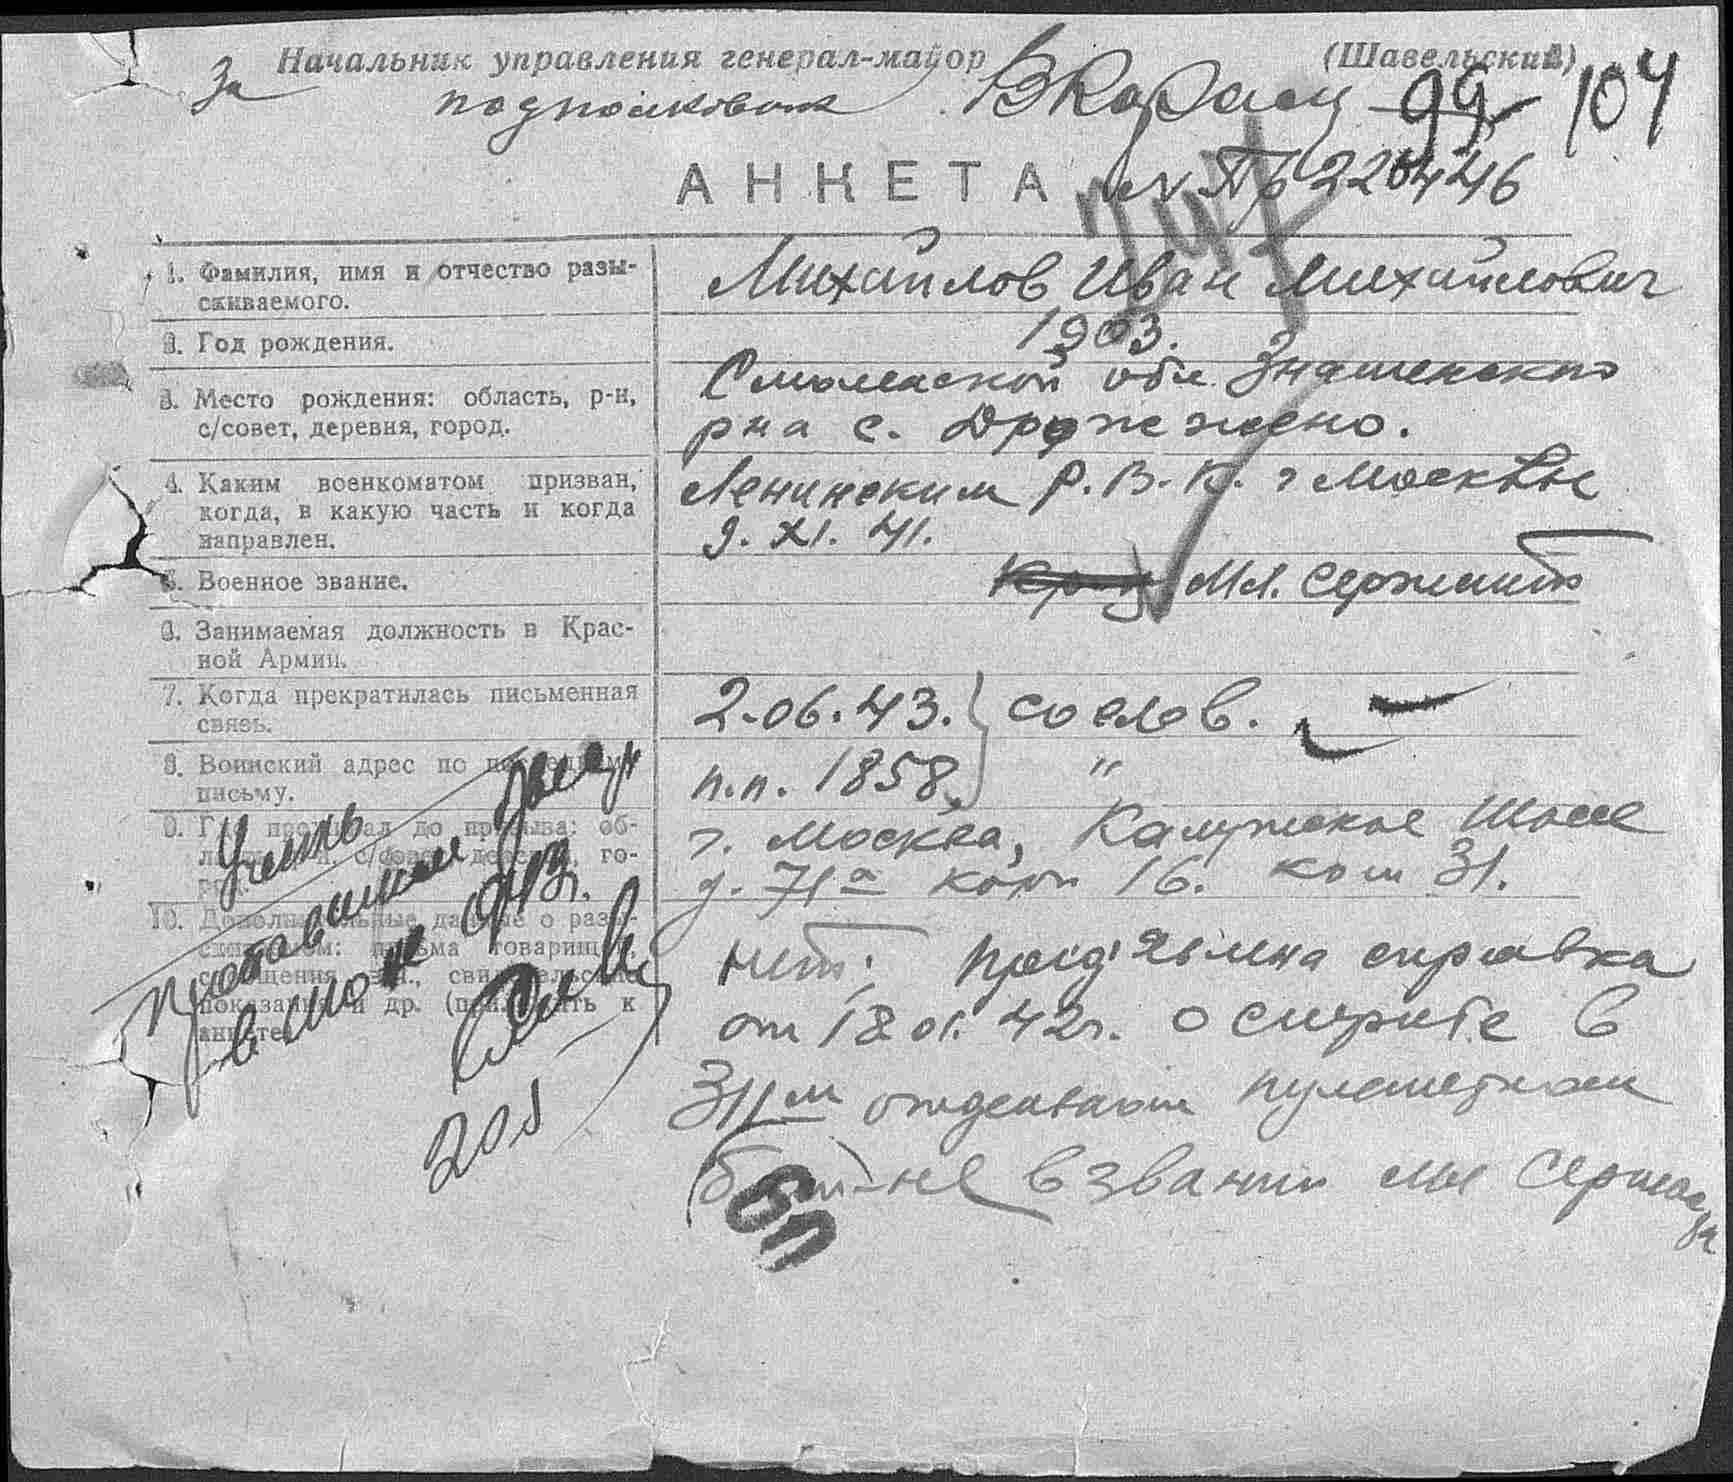 Начальник управления генерал-майор (Шавельский)
За подполковник 99 104
АНКЕТА № ПБ 220446
747
1. Фамилия, имя и отчество разы-
скиваемого.
Михайлов Иван Михайлович
2. Год рождения.
1903.
3. Место рождения: область, р-н,
с/совет, деревня, город.
Смоленской обл. Знаменского
рна с.
4. Каким военкоматом призван,
когда, в какую часть и когда
направлен.
Ленинским Р.В.К. г Москвы
9. XI. 41.
5. Военное звание.
Мл. Сержант
6. Занимаемая должность в Крас-
ной Армии.
7. Когда прекратилась письменная
связь.
2.06.43. со слов.
8. Воинский адрес по последнему
письму.
п.п. 1858. "
9. Где проживал до призыва: об-
го-
г. Москва, Калужское Шоссе
д. 71а корп 16. ком 31.
10. Дополнительные данные о разы-
скиваемом: письма товарищей,
сообщения в/ч., свидетельские
показания и др. (приложить к
анкете
нет; пред'явлена справка
от 18 01. 42г. о службе в
311м отдельном пулеметном
бат-не в звании мл Сержанта
бп
Учесть
пропавшим
в июне 1943г.
205